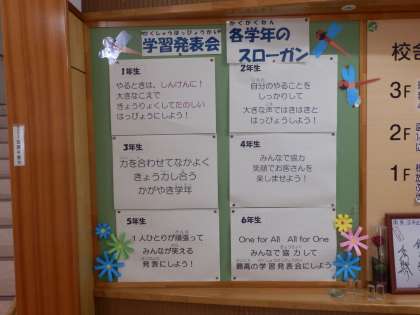 学習発表会
各学年の
スローガン
1年生
やるときは、しんけんに！
大きなこえで
きょうりょくしてたのしい
はっぴょうにしよう！
2年生
自分のやることを
しっかりして
大きな声ではきはきと
はっぴょうしよう！
3年生
力を合わせてなかよく
きょう力し合う
かがやき学年
4年生
みんなで協力
笑顔でお客さんを
楽しませよう！
5年生
1人ひとりが頑張って
みんなが笑える
発表にしよう！
6年生
One for All All for One
みんなで協力して
最高の学習発表会にしよう
校舎
3F
2F
1F